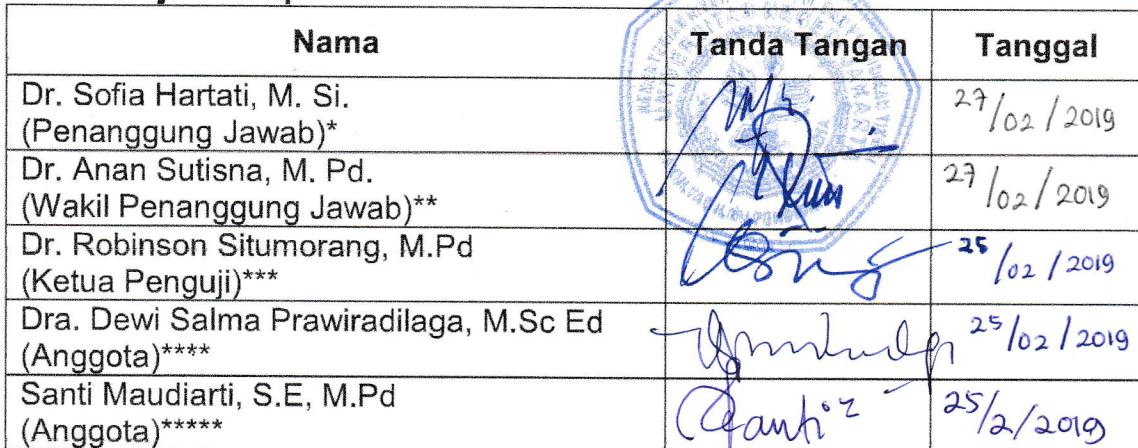 Nama Tanda Tangan Tanggal
Dr. Sofia Hartati, M. Si.
(Penanggung Jawab)* 27/02/2019
Dr. Anan Sutisna, M. Pd.
(Wakil Penanggung Jawab)** 27/02/2019
Dr. Robinson Situmorang, M.Pd
(Ketua Penguji)*** 25/02/2019
Dra. Dewi Salma Prawiradilaga, M.Sc Ed
(Anggota)**** 25/02/2019
Santi Maudiarti, S.E, M.Pd
(Anggota)***** 25/2/2019